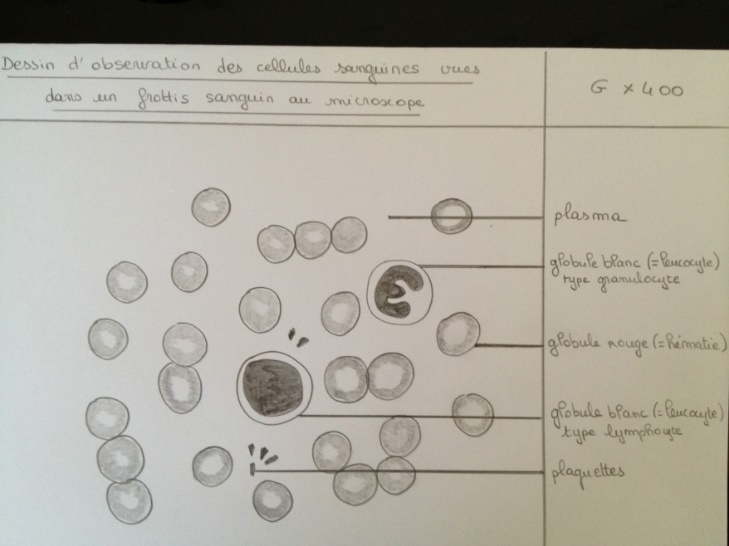 Dessin d'observation des cellules sanguines vues
dans un frottis sanguin au microscope
G x 400
plasma
globule blanc (=leucocyte)
type granulocyte
globule rouge (=hématie)
globule blanc (=leucocyte)
type lymphocyte
plaquettes